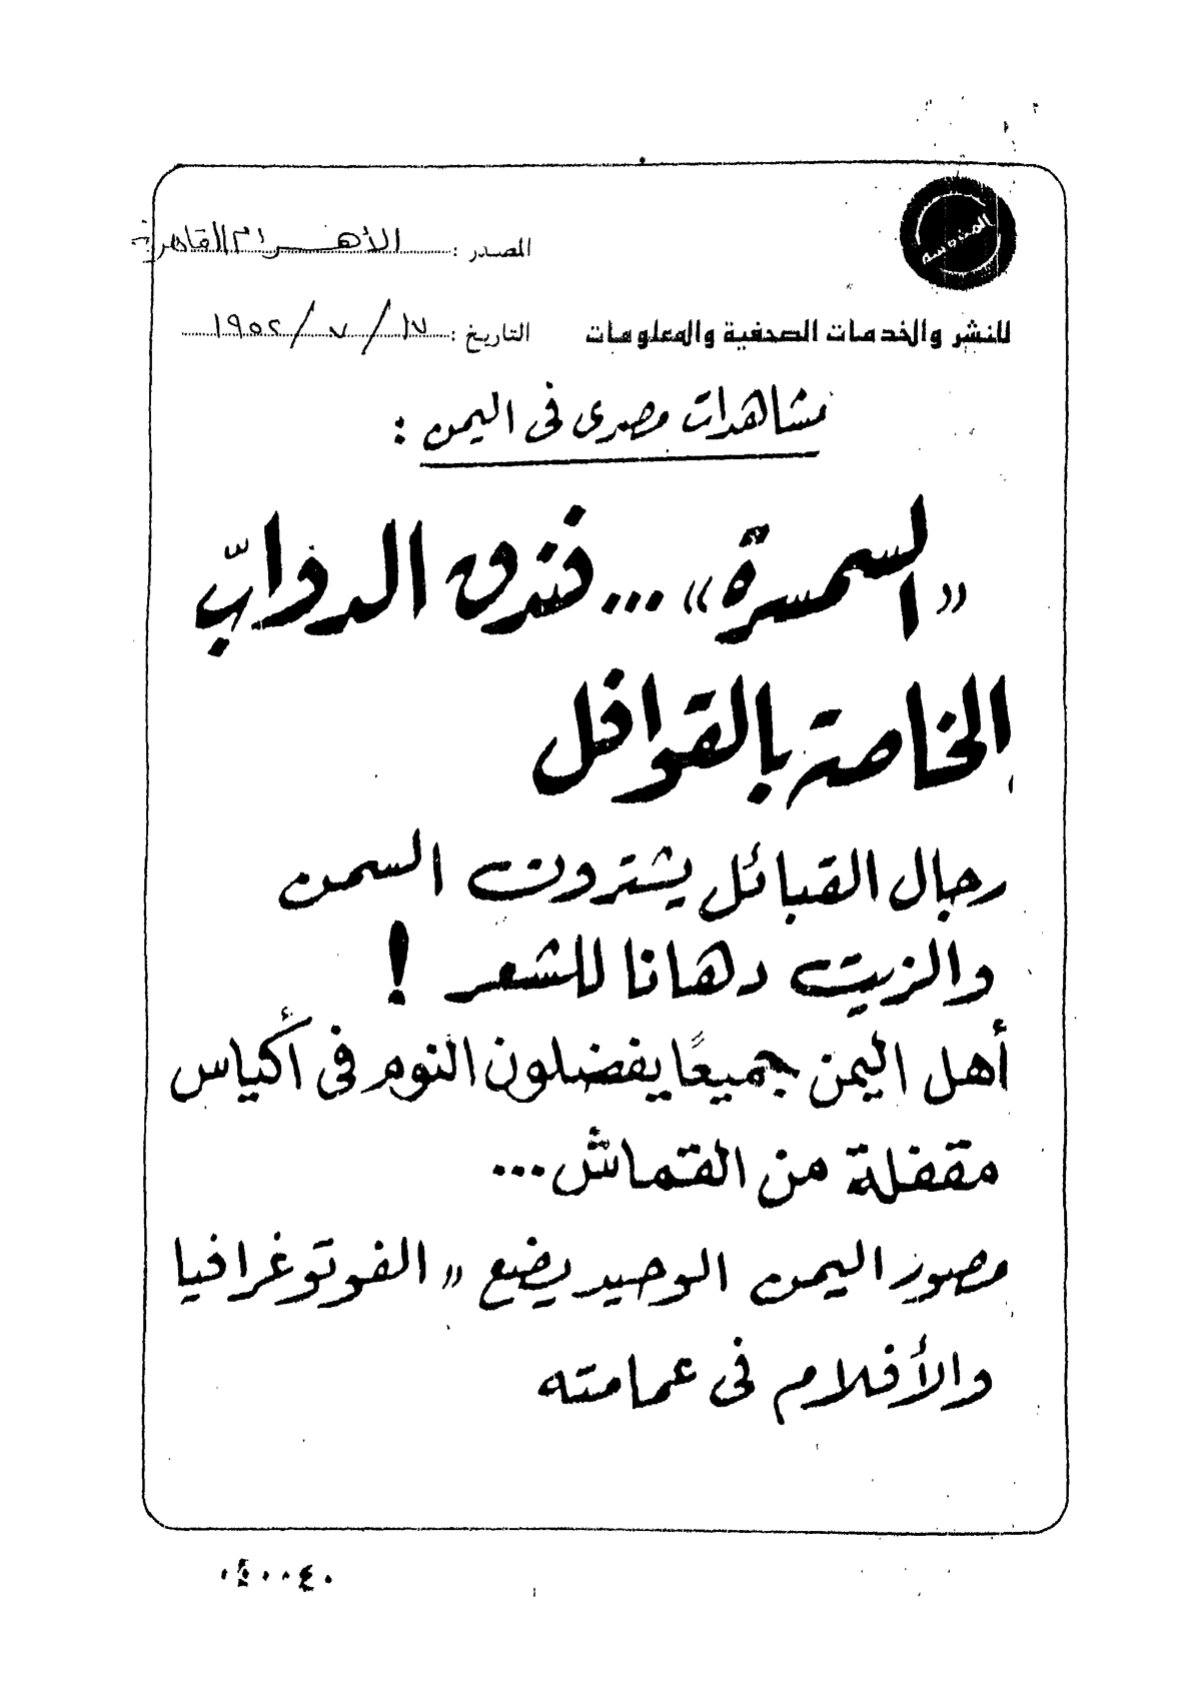 المصدر : الأهرام القاهرية
للنشر والخدمات الصحفية والمعلومات
التاريخ : ١٧ / ٧ / ١٩٥٢
مشاهدات مصرى فى اليمن :
«السمسرة» ... فندق الدوابّ
الخاصة بالقوافل
رجال القبائل يشترون السمن
والزيت دهانا للشعر !
أهل اليمن جميعًا يفضلون النوم فى أكياس
مقفلة من القماش ...
مصور اليمن الوحيد يضع « الفوتوغرافيا
والأفلام فى عمامته